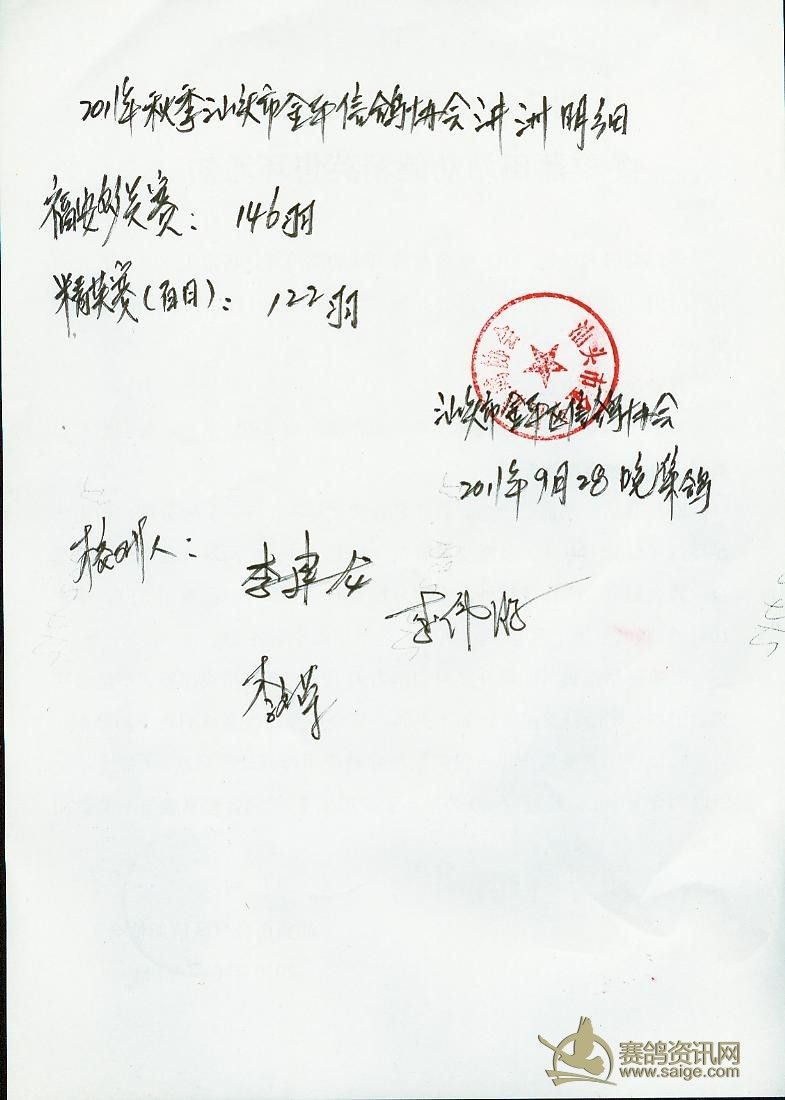 2011年秋季汕头市金平信鸽协会 明细
福安 赛: 146羽
精英赛(百日): 122羽
汕头市
汕头市金平区信鸽协会
2011年9月28晚集鸽
校对人:
李
李伟
李
赛鸽资讯网
www.saige.com